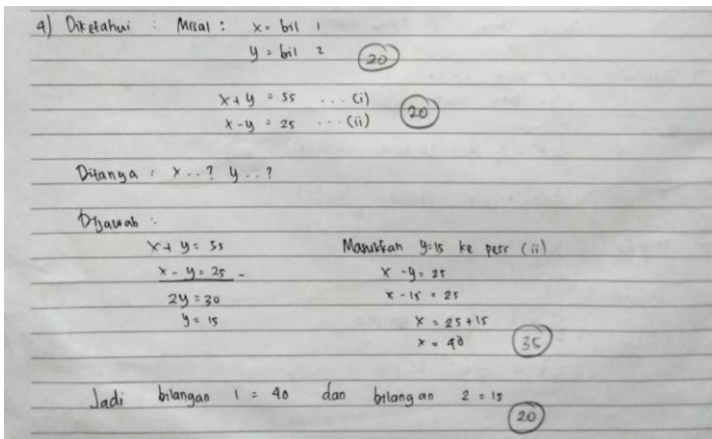 4) Diketahui : Misal : x = bil 1
y = bil 2 20
x + y = 55 ... (i)
x - y = 25 ... (ii) 20
Ditanya : x ..? y ..?
Dijawab :
x + y = 55 Masukkan y=15 ke pers (ii)
x - y = 25 - x - y = 25
2y = 30 x - 15 = 25
y = 15 x = 25 + 15
x = 40 35
Jadi bilangan 1 = 40 dan bilangan 2 = 15
20